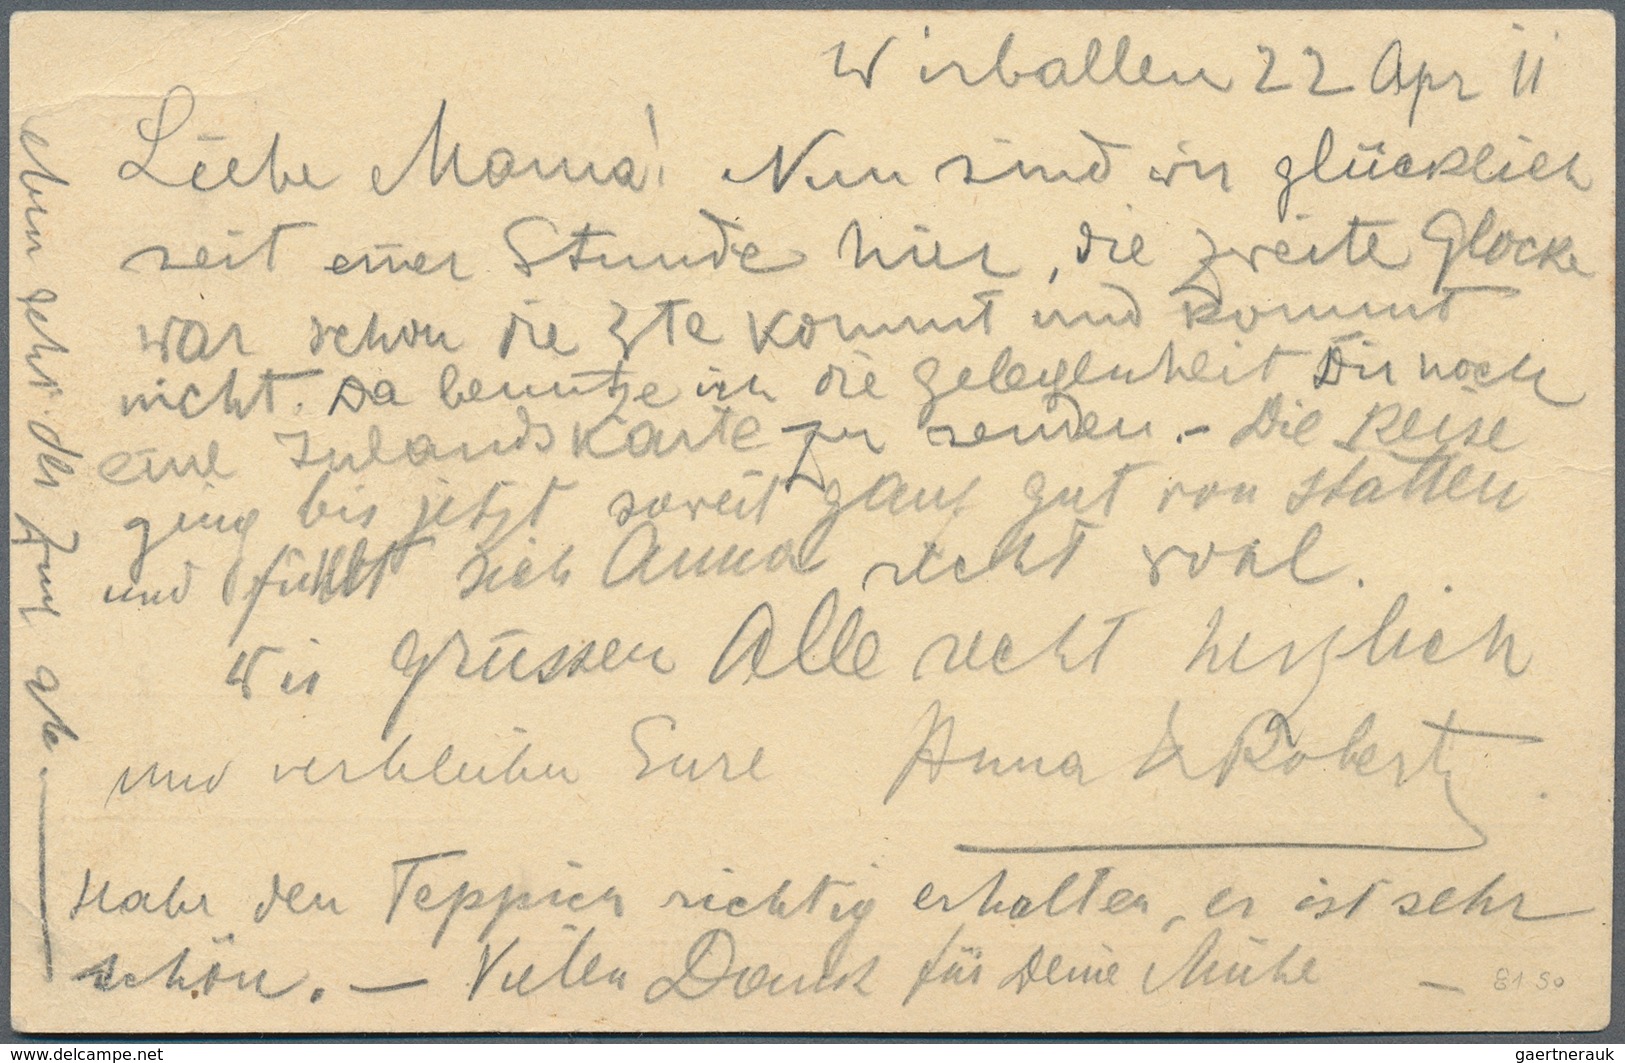 Wirballen 22 Apr 11
Liebe Mama! Nun sind wir glücklich
seit einer Stunde hier, die zweite Glocke
war schon die 3te kommt und kommt
nicht. Da benutze ich die Gelegenheit Dir noch
eine Inlandskarte zu senden. - Die Reise
ging bis jetzt soweit ganz gut von statten
und fühlt sich Anna recht wohl.
Wir grüssen Alle recht herzlich
und verbleiben Eure Anna & Robert.
Habe den Teppich richtig erhalten, er ist sehr
schön. - Vielen Dank für Deine Mühe -
8150
eben geht der Zug ab.
www.delcampe.net
gaertnerauk